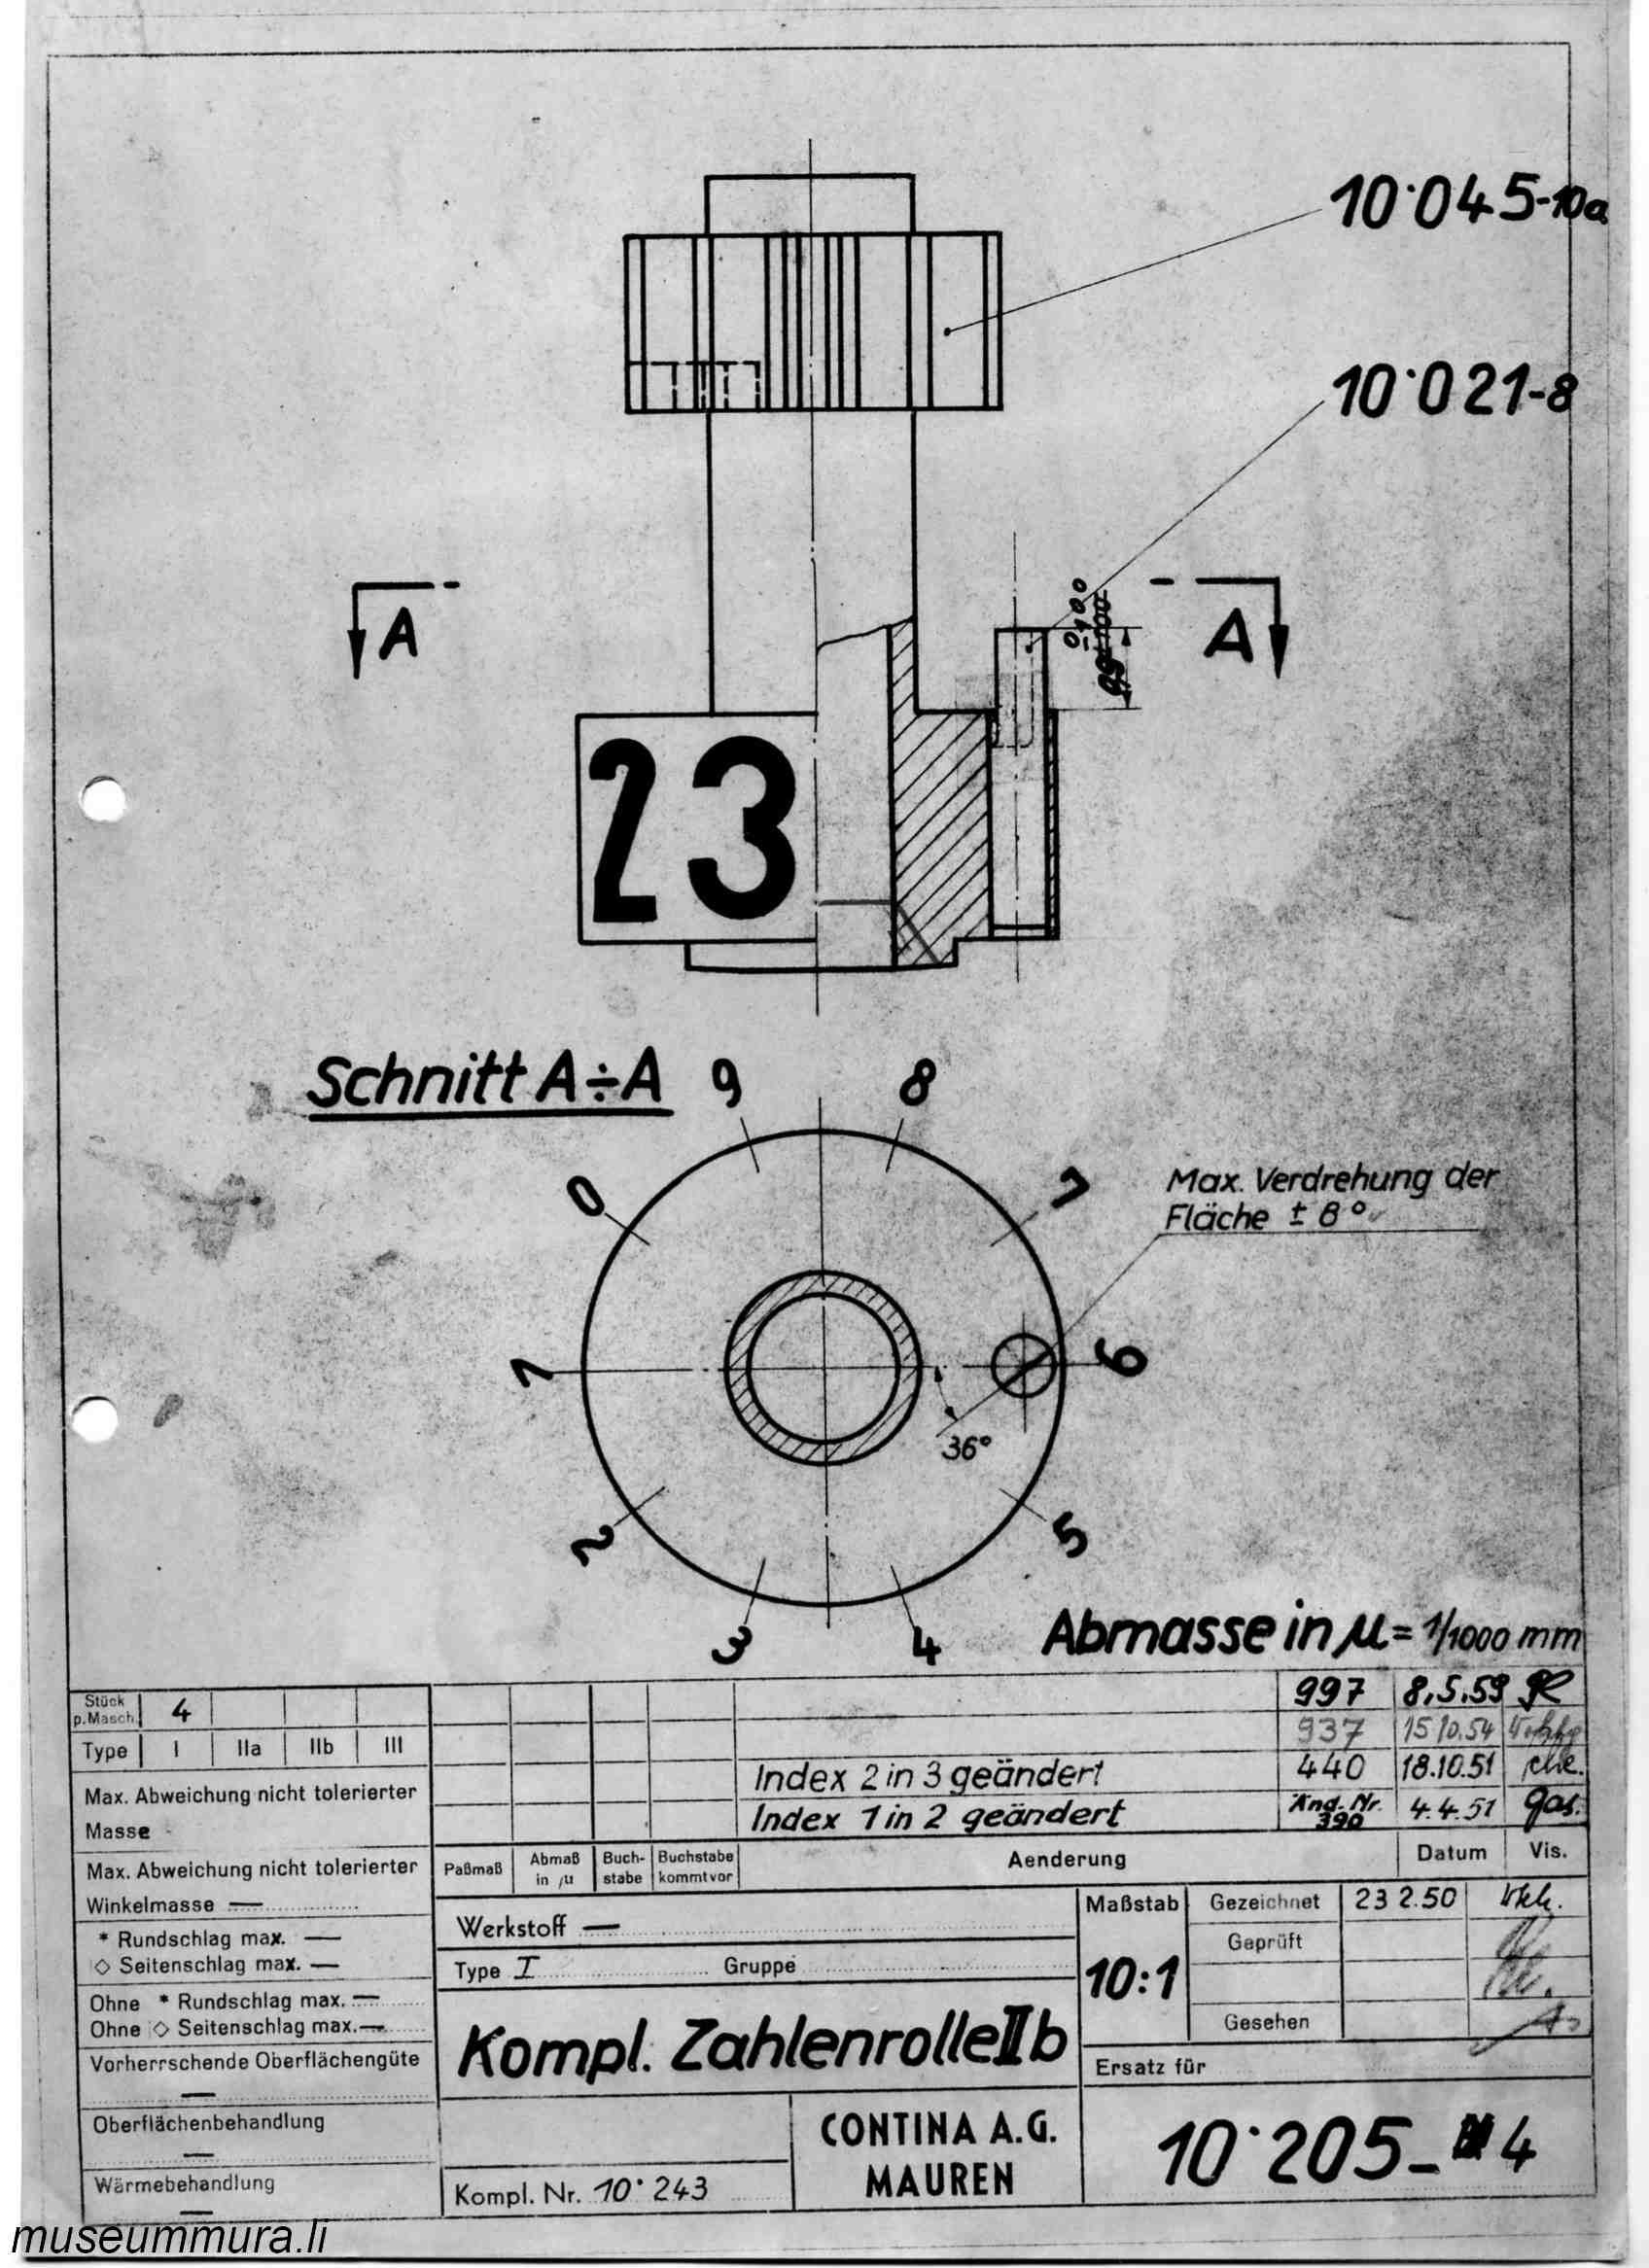 10·045-10a
10·021-8
A
A
23
Schnitt A÷A
9
8
0
7
Max. Verdrehung der
Fläche ± 8°
1
6
36°
2
5
3
4
Abmasse in µ = 1/1000 mm
Stück p. Masch. 4
Type I IIa IIb III
Max. Abweichung nicht tolerierter
Masse -
Max. Abweichung nicht tolerierter
Winkelmasse —
* Rundschlag max. —
◇ Seitenschlag max. —
Ohne * Rundschlag max. —
Ohne ◇ Seitenschlag max. —
Vorherrschende Oberflächengüte
—
Oberflächenbehandlung
—
Wärmebehandlung
—
997 8.5.59
937 15.10.54
Index 2 in 3 geändert 440 18.10.51
Index 1 in 2 geändert Änd. Nr. 390 4.4.51 gas.
Paßmaß
Abmaß in µ
Buch-stabe
Buchstabe kommt vor
Aenderung
Datum
Vis.
Werkstoff —
Type I Gruppe
Kompl. Zahlenrolle II b
Kompl. Nr. 10·243
CONTINA A.G.
MAUREN
Maßstab
10:1
Gezeichnet 23 2.50
Geprüft
Gesehen
Ersatz für
10·205-4
museummura.li